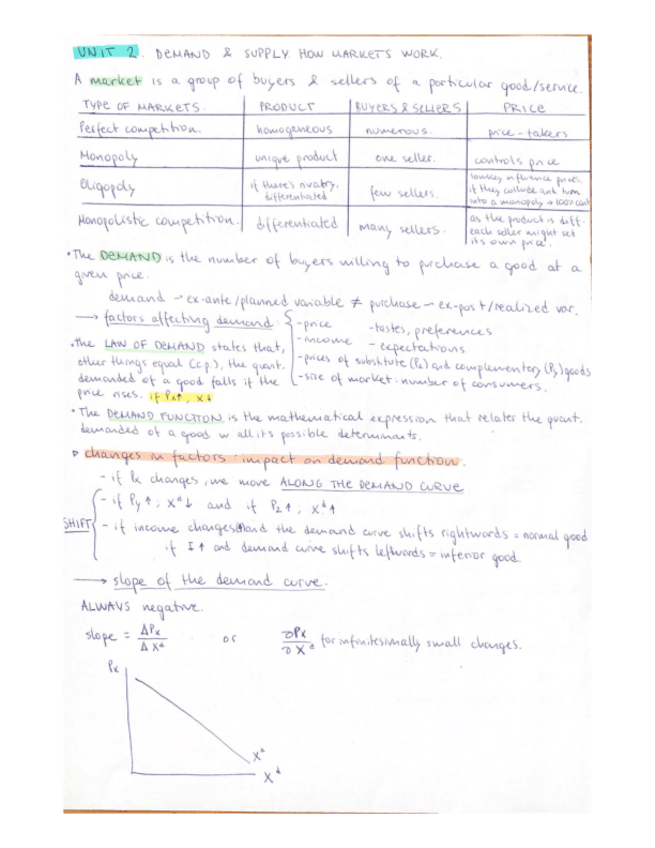 UNIT 2. DEMAND & SUPPLY HOW MARKETS WORK.
A market is a group of buyers & sellers of a particular good/service.
TYPE OF MARKETS. PRODUCT BUYERS & SELLERS PRICE
Perfect competition. homogeneous numerous. price-takers
Monopoly unique product one seller. controls price
Oligopoly if there's rivalry, differentiated few sellers. influence prices. if they collude and turn into a monopoly → 100% cont
Monopolistic competition. differentiated many sellers. as the product is diff. each seller might set its own price.
• The DEMAND is the number of buyers willing to purchase a good at a
given price.
demand → ex-ante/planned variable ≠ purchase → ex-post/realized var.
→ factors affecting demand:
- price - tastes, preferences
- income - expectations
- prices of substitute (Pz) and complementary (Py) goods
- size of market: number of consumers.
• the LAW OF DEMAND states that,
other things equal (c.p.), the quant.
demanded of a good falls if the
price rises. if Px↑, x↓
• The DEMAND FUNCTION is the mathematical expression that relates the quant.
demanded of a good w all its possible determinants.
▷ changes in factors: impact on demand function.
- if Px changes, we move ALONG THE DEMAND CURVE
SHIFT
- if Py↑; Xᵈ↓ and if Pz↑; Xᵈ↑
- if income changes(↑) and the demand curve shifts rightwards = normal good
if I↑ and demand curve shifts leftwards = inferior good.
→ slope of the demand curve.
ALWAYS negative.
slope = ΔPx/ΔXᵈ or ∂Px/∂Xᵈ for infinitesimally small changes.
Px
Xᵈ
Xᵈ